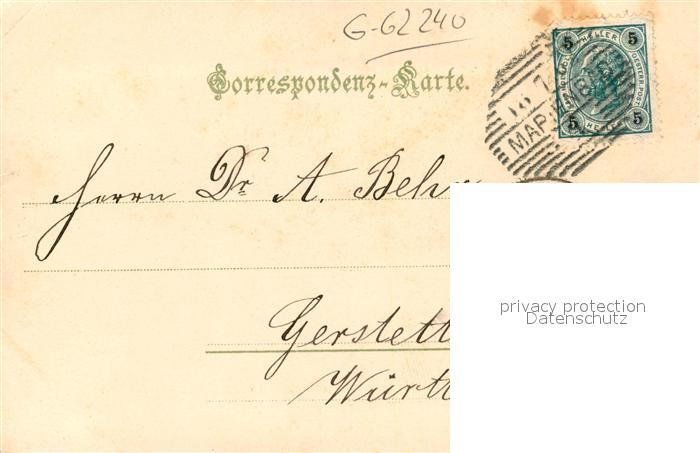 G-62240
Correspondenz-Karte.
5 HELLER 5
5 HELLER 5
Herrn Dr. A. Behr
Gerstett
Württ
privacy protection
Datenschutz